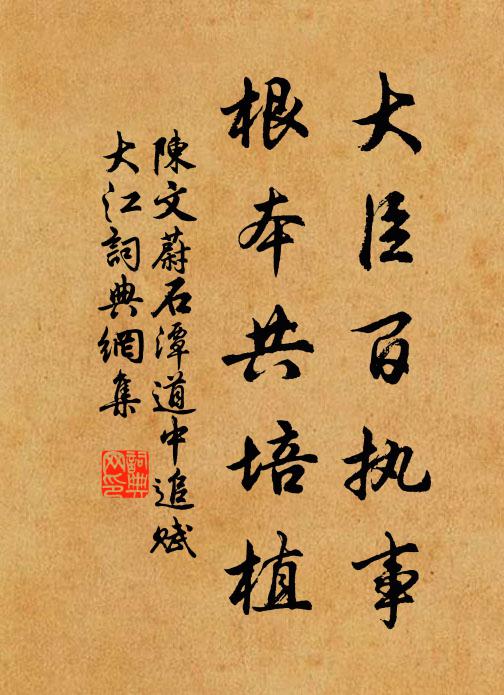 大臣百执事
根本共培植
陳文蔚石潭道中追赋
大江詞典網集
詞典
网印